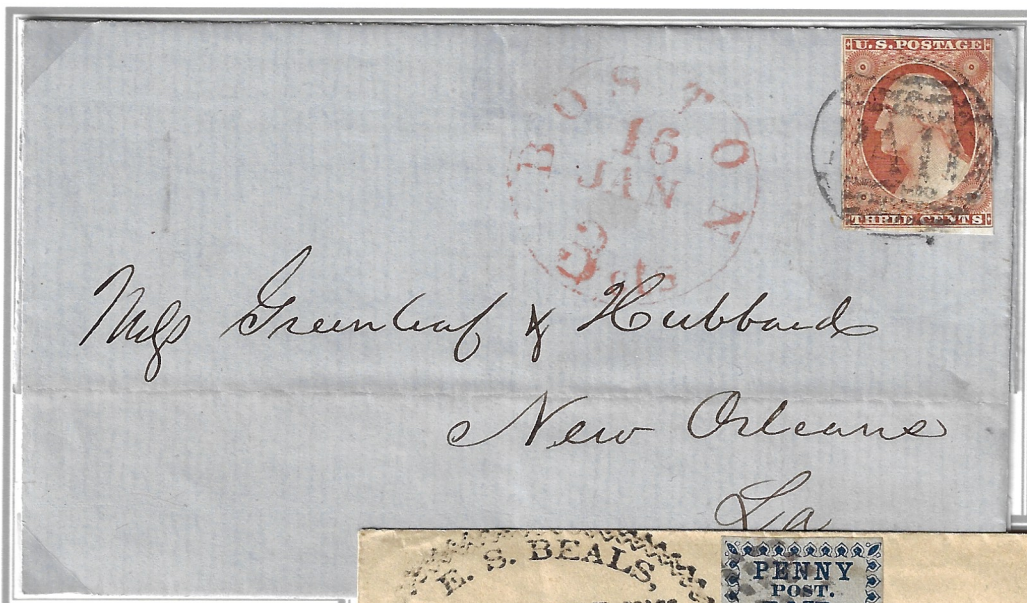 U.S. POSTAGE
THREE CENTS
BOSTON
16
JAN
3 cts
PAID
Mess Greenleaf & Hubbard
New Orleans
La
E. S. BEALS,
PENNY
POST.